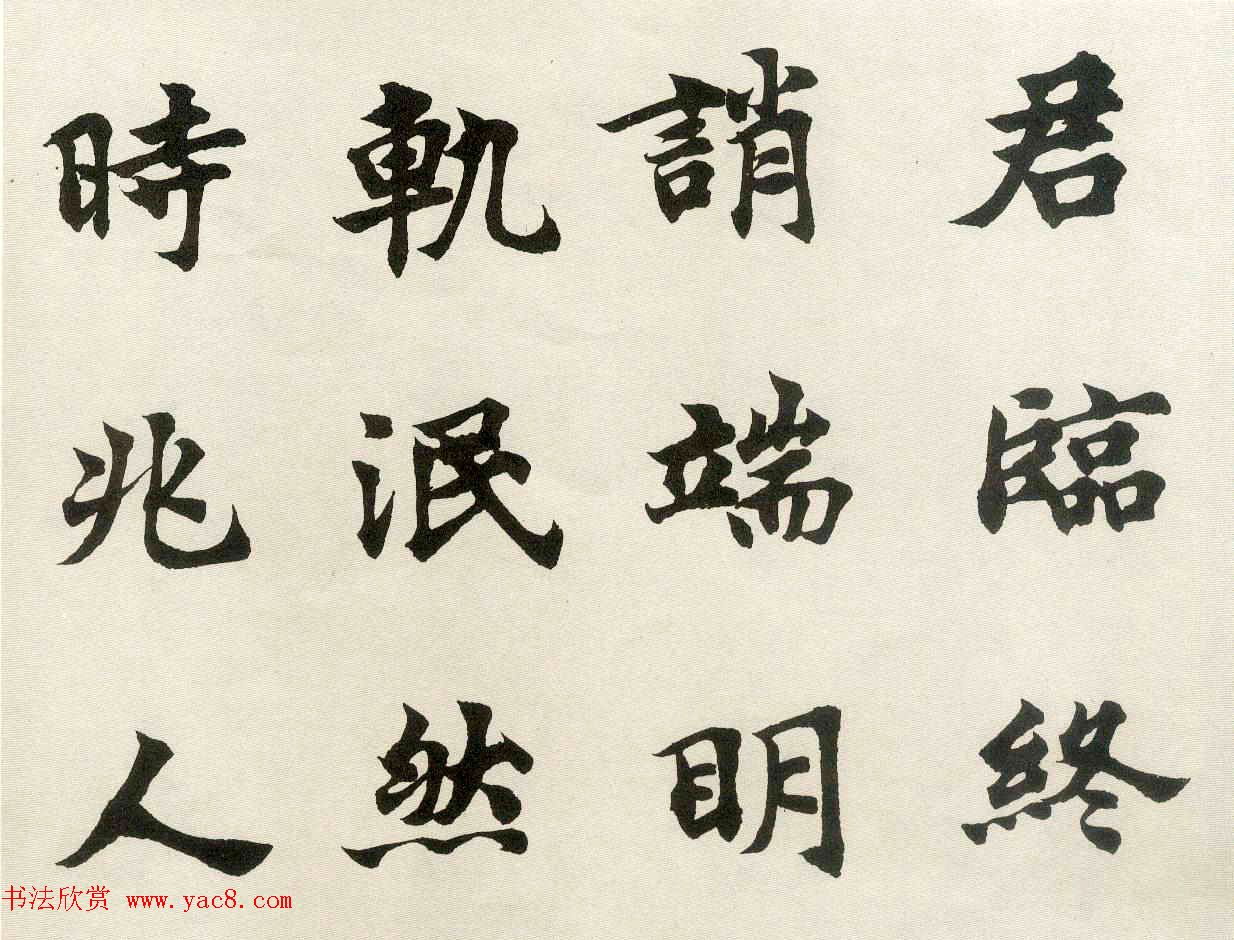 君臨終
誚端明
軌泯然
時兆人
书法欣赏 www.yac8.com